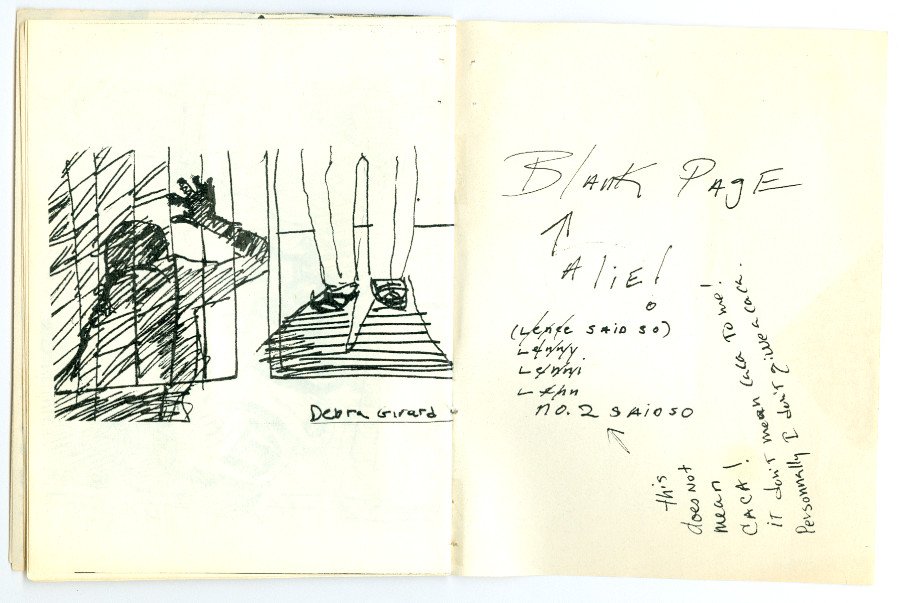 Debra Girard
Blank Page
A lie!
(Lenne said so)
Lenny
Lenni
Lenn
no. 2 said so
this
does not
mean
CACA!
it don't mean caca to me!
Personnally I don't give a caca.